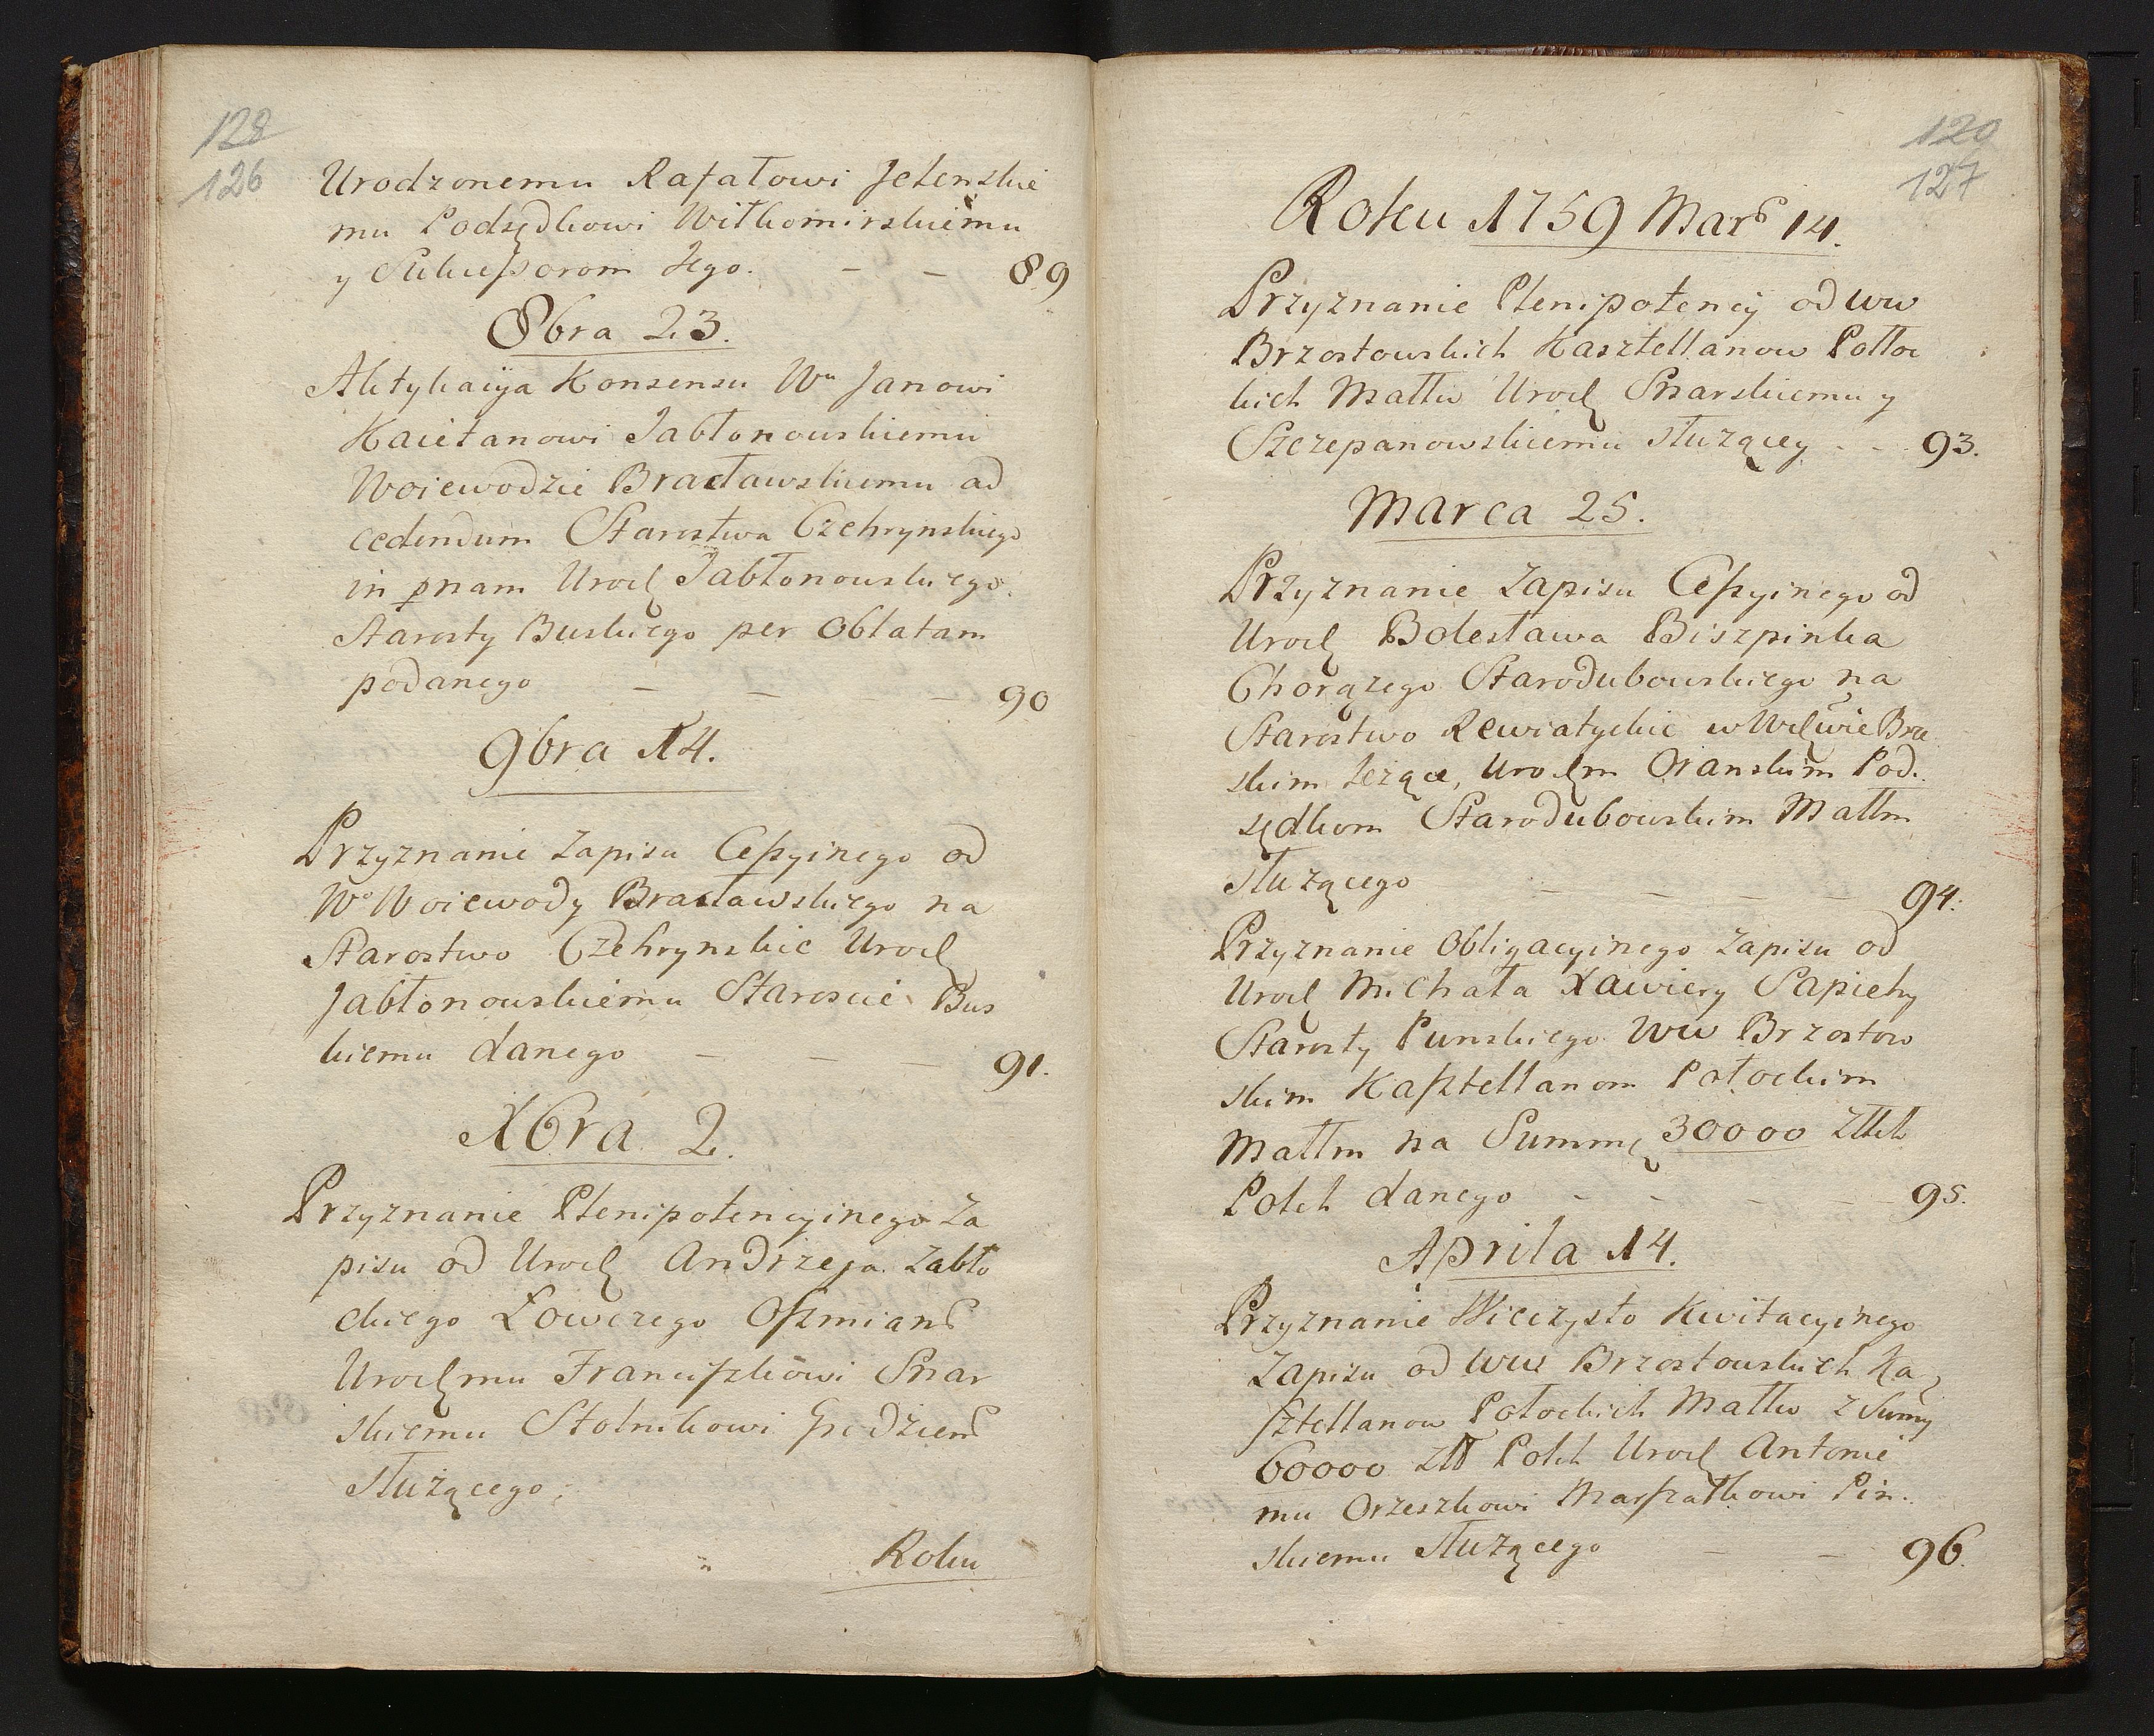 128
126
Urodzonemu Rafałowi Jelenskie
mu Podsędkowi Wiłkomirskiemu
y Sukceßorom Jego. — — 89
8bra 23.
Aktykacyja Konsensu Wu Janowi
Kaietanowi Jabłonowskiemu
Woiewodzie Bracławskiemu ad
cedendum Starostwa Czehrynskiego
in pnam Urodz Jabłonowskiego
Starosty Buskiego per Oblatam
podanego — — — 90
9bra 14.
Przyznanie Zapisu Ceßyinego od
Wo Woiewody Bracławskiego na
Starostwo Czehrynskie Urodz
Jabłonowskiemu Staroscie Bus
kiemu danego — — — 91.
Xbra 2.
Przyznanie Plenipotencyinego Za
pisu od Urodz Andrzeja Zabło
ckiego Łowczego Oszmians
Urodzmu Franciszkowi Snar
skiemu Stolnikowi Grodziens
służącego.
Roku
129
127
Roku 1759 Mars 14.
Przyznanie Plenipotencij od WW
Brzostowskich Kasztellanow Połłoc
kich Małłw Urodz Snarskiemu y
Szczepanowskiemu służącey - - 93.
Marca 25.
Przyznanie Zapisu Ceßyinego od
Urodz Bolesława Biszpinka
Chorązego Starodubowskiego na
Starostwo Rewiatyckie w Wdztwie Brze
skim lezące, Urodzm Oranskim Pod.
sędkom Starodubowskim Małłm
służącego — — — — 94.
Przyznanie Obligacyinego Zapisu od
Urodz Michała Xawiery Sapiehy
Starosty Punskiego WW Brzostow
skim Kasztellanom Połockim
Małłm na Summę 30000 Złłch
Polch danego - - - — 95.
Aprila 14.
Przyznanie Wieczysto Kwitacyinego
Zapisu od WW Brzostowskich Ka
sztellanow Połockich Małłw z Sumy
60000 Złł Polch Urodz Antonie
mu Orzeszkowi Marszałkowi Pin.
skiemu służącego — — 96.